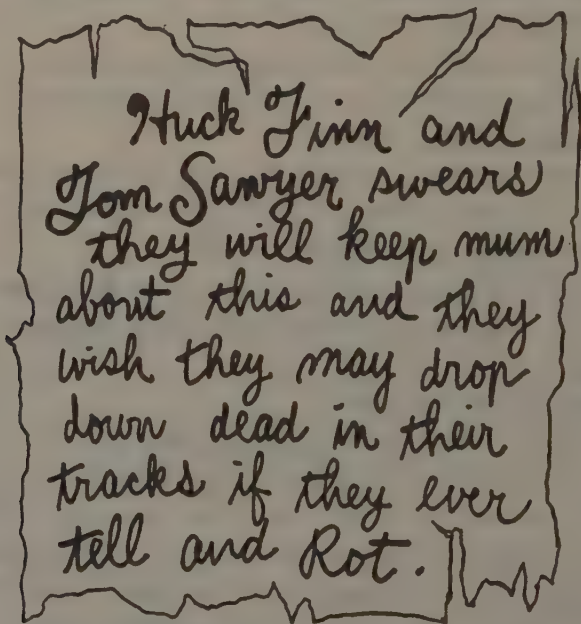 Huck Finn and
Tom Sawyer swears
they will keep mum
about this and they
wish they may drop
down dead in their
tracks if they ever
tell and Rot.